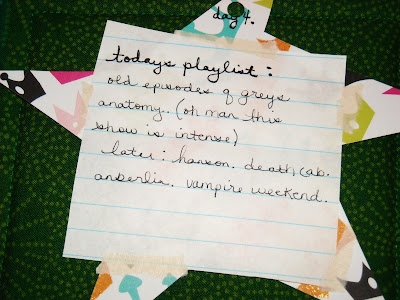 day 4.
todays playlist:
old episodes of greys
anatomy. (oh man this
show is intense)
later: hanson. death cab.
anberlin. vampire weekend.